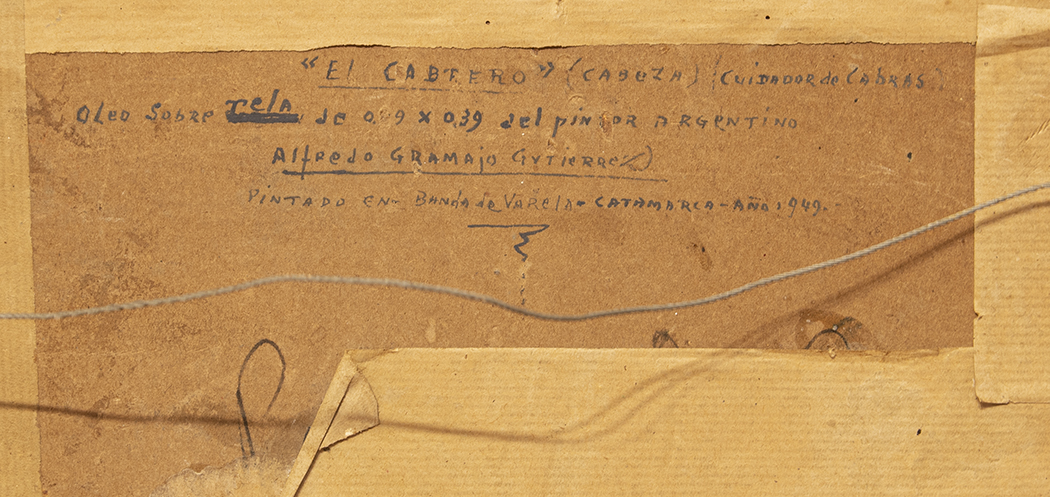 "El CABTERO" (CABEZA) (CUIDADOR de CABRAS)
OLEO SOBRE TELA de 0,49 x 0,39 del pintOR ARGENTINO
Alfredo GRAMAJO GUTIERREZ)
PINTADO EN - BANDA de VARELA - CATAMARCA - AÑO 1949.-